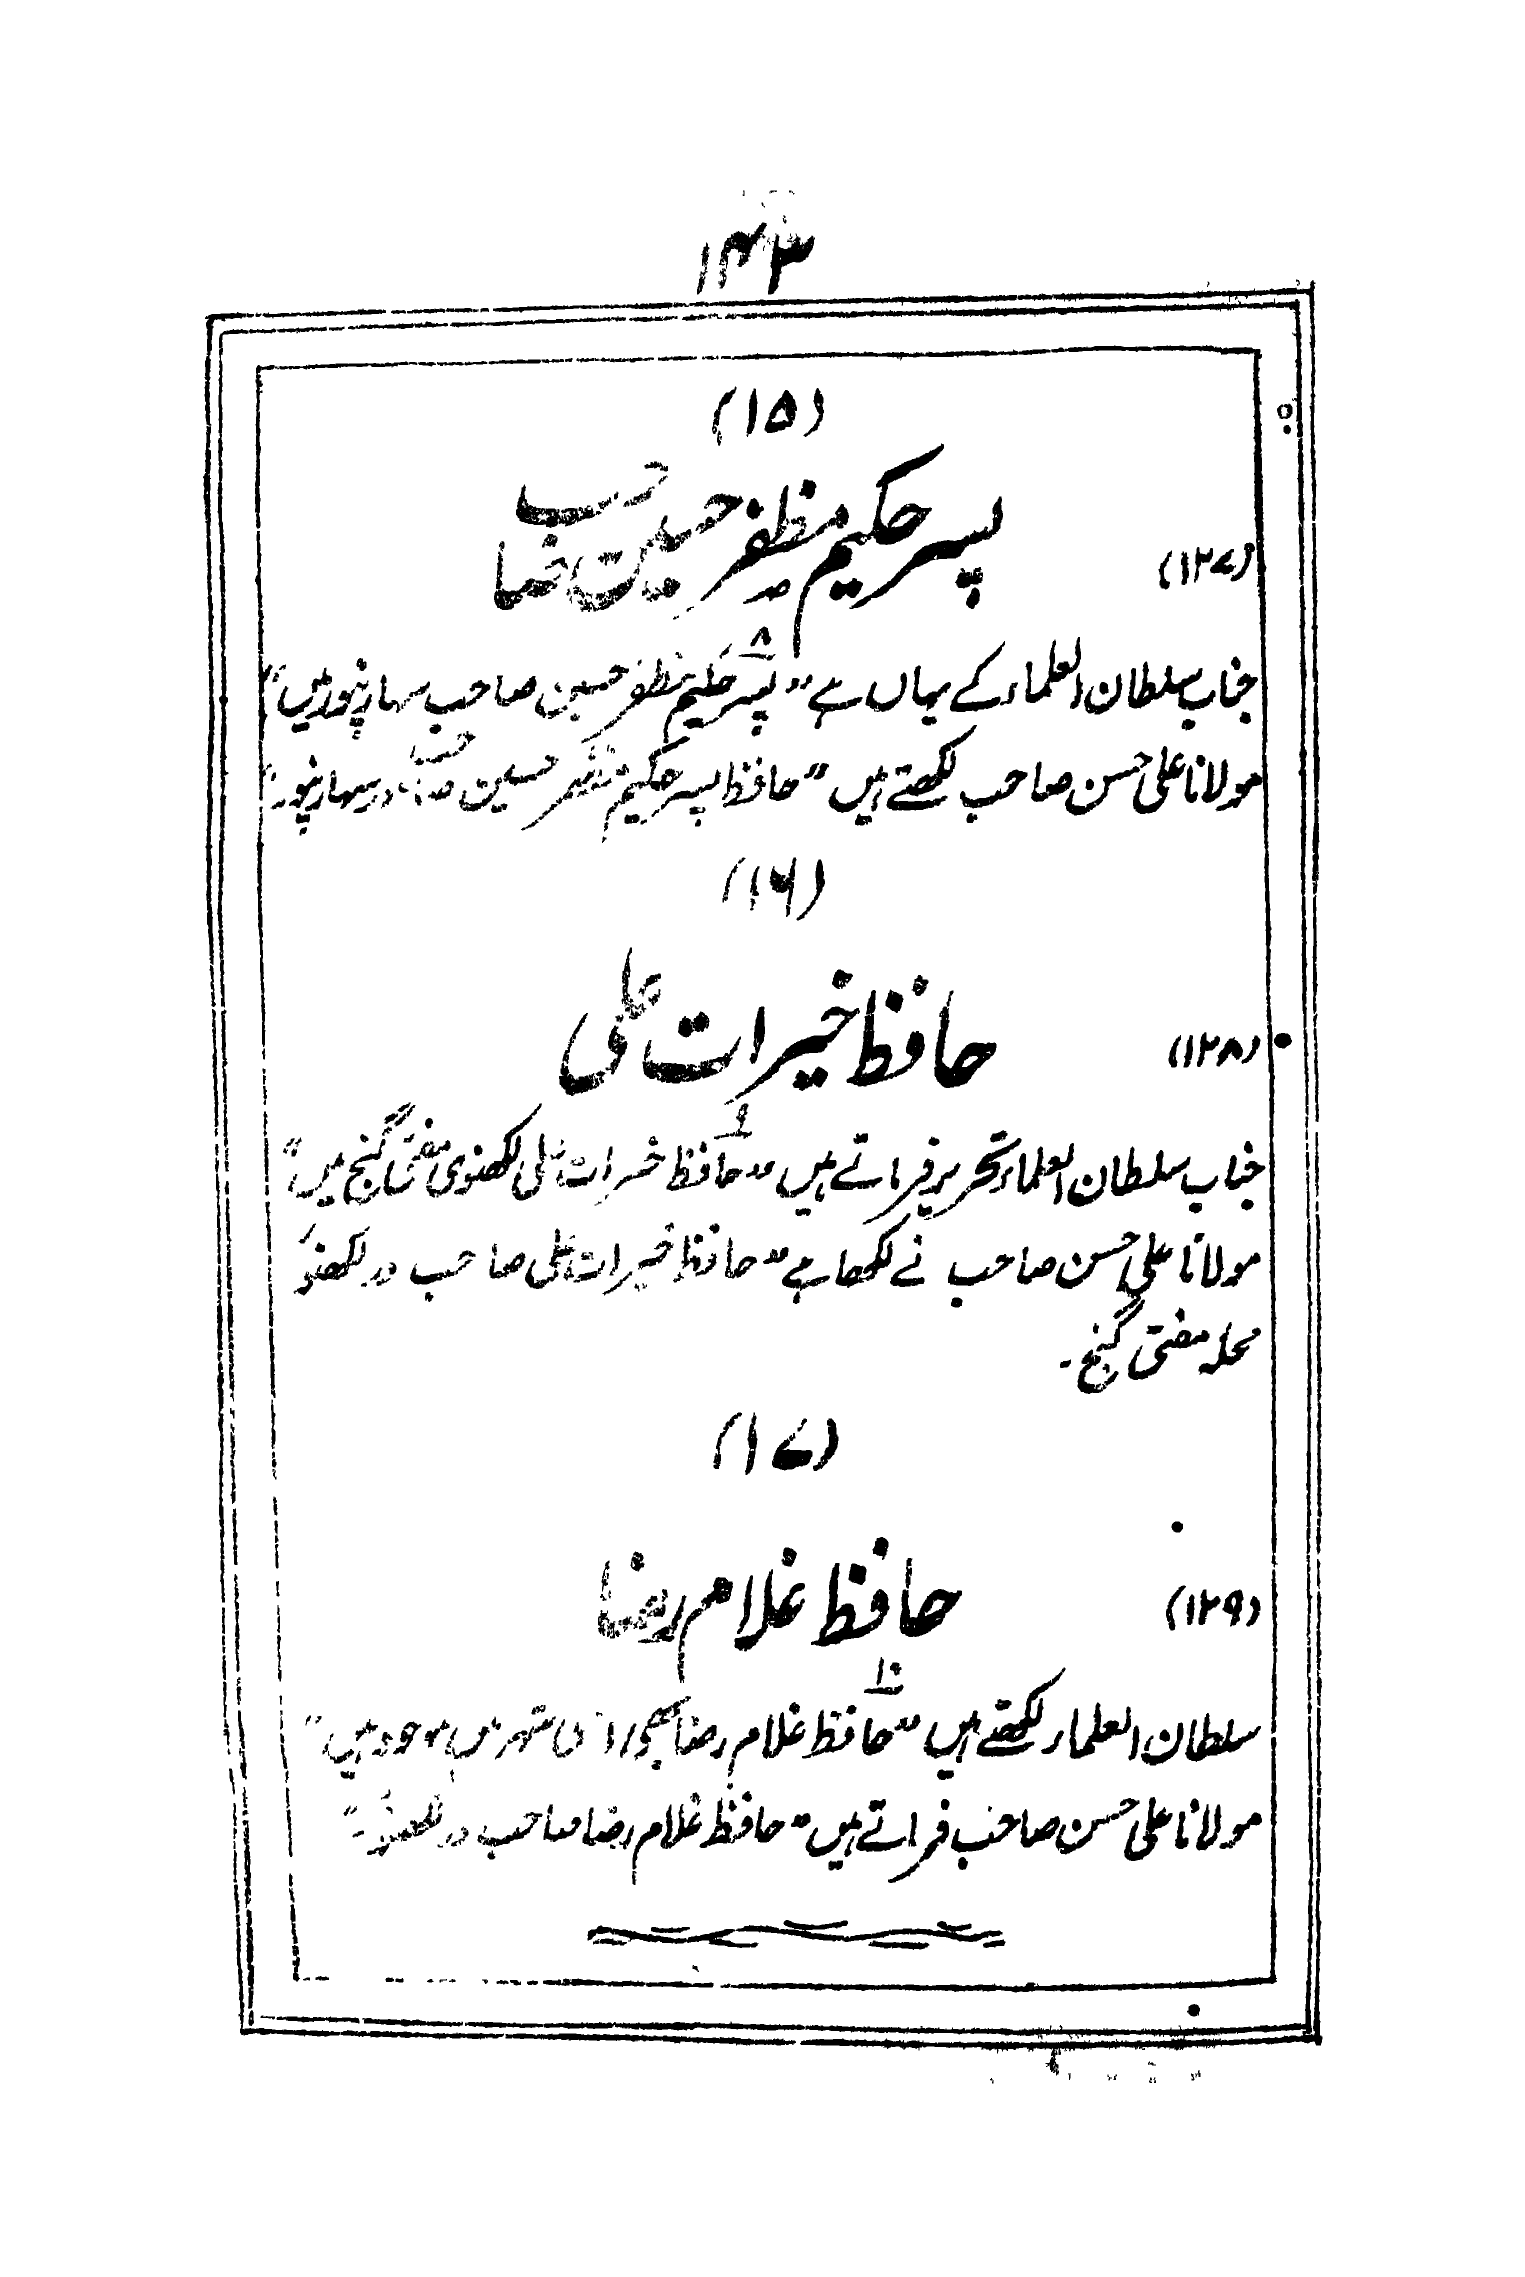 ۱۴۳
(۱۵)
(۱۲۷) پسر حکیم مظفر حسین صاحب
جناب سلطان العلماء کے یہاں ہے "پسر حکیم مظفر حسین صاحب سہارنپور میں"
مولانا علی حسن صاحب لکھتے ہیں "حافظ پسر حکیم مظفر حسین صاحب در سہارنپور"
(۱۶)
(۱۲۸) حافظ خیرات علی
۹
جناب سلطان العلماء تحریر فرماتے ہیں "حافظ خیرات علی لکھنوی مفتی گنج میں"
مولانا علی حسن صاحب نے لکھا ہے "حافظ خیرات علی صاحب در لکھنؤ
محلہ مفتی گنج۔
(۱۷)
(۱۲۹) حافظ غلام رضا
۱۰
سلطان العلماء لکھتے ہیں "حافظ غلام رضا بھی اسی شہر میں موجود ہیں"
مولانا علی حسن صاحب فرماتے ہیں "حافظ غلام رضا صاحب در لکھنؤ"